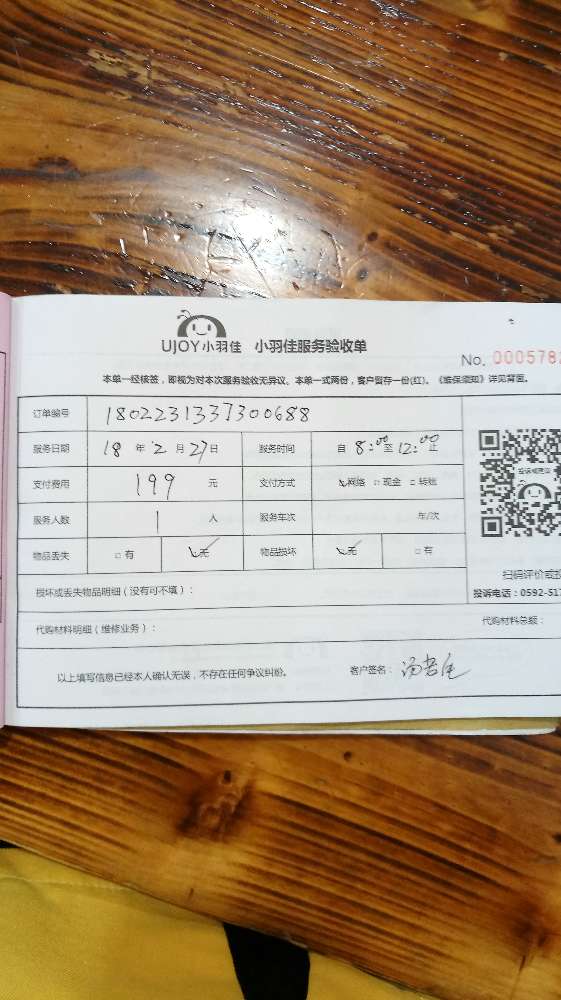 UJOY小羽佳 小羽佳服务验收单
No. 000578
本单一经核签，即视为对本次服务验收无异议。本单一式两份，客户留存一份(红)。《维保须知》详见背面。
订单编号 180223133730068​8
服务日期 18 年 2 月 27 日 服务时间 自 8:00 至 12:00 止
支付费用 199 元 支付方式 ☑网络 □现金 □转账
服务人数 1 人 服务车次 车/次
物品丢失 □有 ☑无 物品损坏 ☑无 □有
投诉或建议
扫码评价或投
投诉电话：0592-517
损坏或丢失物品明细（没有可不填）：
代购材料明细（维修业务）： 代购材料总额：
以上填写信息已经本人确认无误，不存在任何争议纠纷。 客户签名：